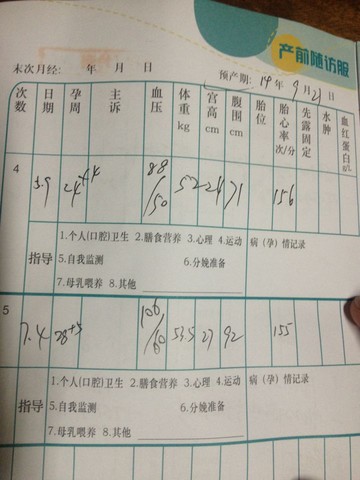 产前随访服
末次月经: 年 月 日 预产期: 19年9月21日
次数 日期 孕周 主诉 血压 体重kg 宫高cm 腹围cm 胎位 胎心率次/分 先露固定 水肿 血红蛋白g/L
4 24+4 88/50 52 24 71 156
指导 1.个人(口腔)卫生 2.膳食营养 3.心理 4.运动 病(孕)情记录
5.自我监测 6.分娩准备
7.母乳喂养 8.其他
5 7.4 28+5 106/60 53.5 27 92 155
指导 1.个人(口腔)卫生 2.膳食营养 3.心理 4.运动 病(孕)情记录
5.自我监测 6.分娩准备
7.母乳喂养 8.其他